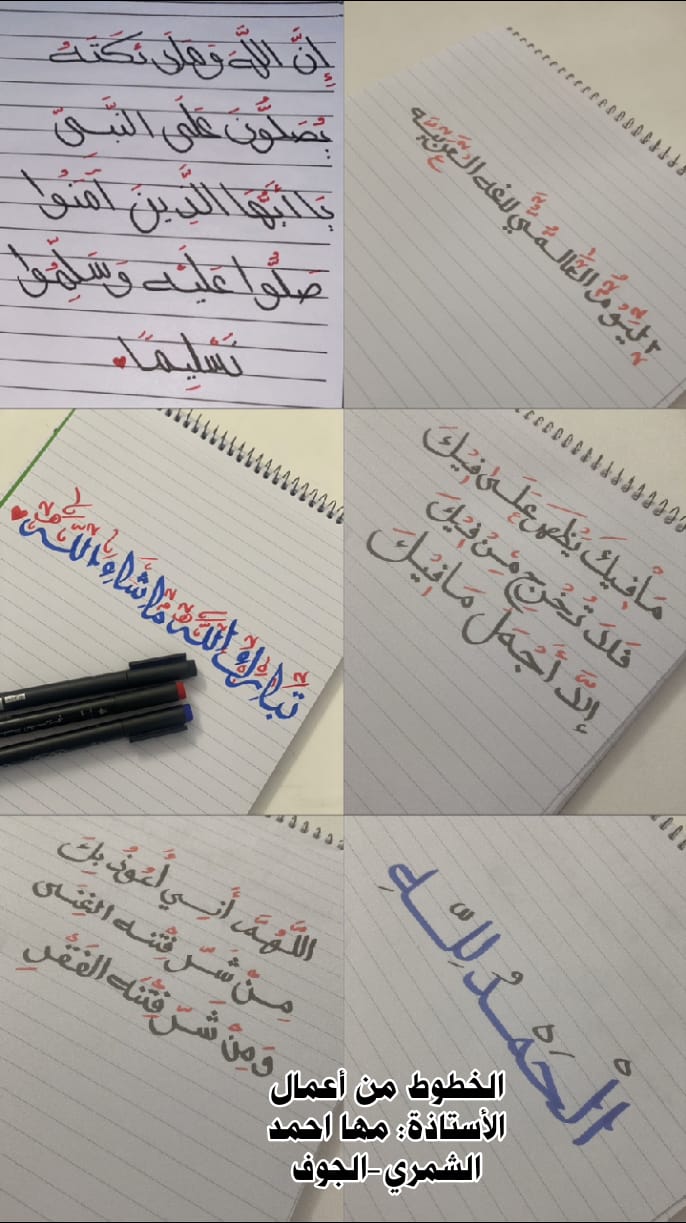 إِنَّ اللَّهَ وَمَلَائِكَتَهُ
يُصَلُّونَ عَلَى النَّبِيِّ
يَا أَيُّهَا الَّذِينَ آمَنُوا
صَلُّوا عَلَيْهِ وَسَلِّمُوا
تَسْلِيمًا
اليوم العالمي للغه العربيه
تبارك الله ماشاء الله
مَافِيكَ يَظْهَر عَلَى فِيكَ
فَلَا تُخْرِج مِنْ فِيكَ
إِلَّا أَجْمَلَ مَافِيكَ
اللَّهُمَّ أَنِي أَعُوذُ بِكَ
مِنْ شَرِّ فِتْنَه الغِنَى
وَمِنْ شَرِّ فِتْنَه الفَقْرِ
الْحَمْدُ لِلَّهِ
الخطوط من أعمال
الأستاذة: مها احمد
الشمري-الجوف